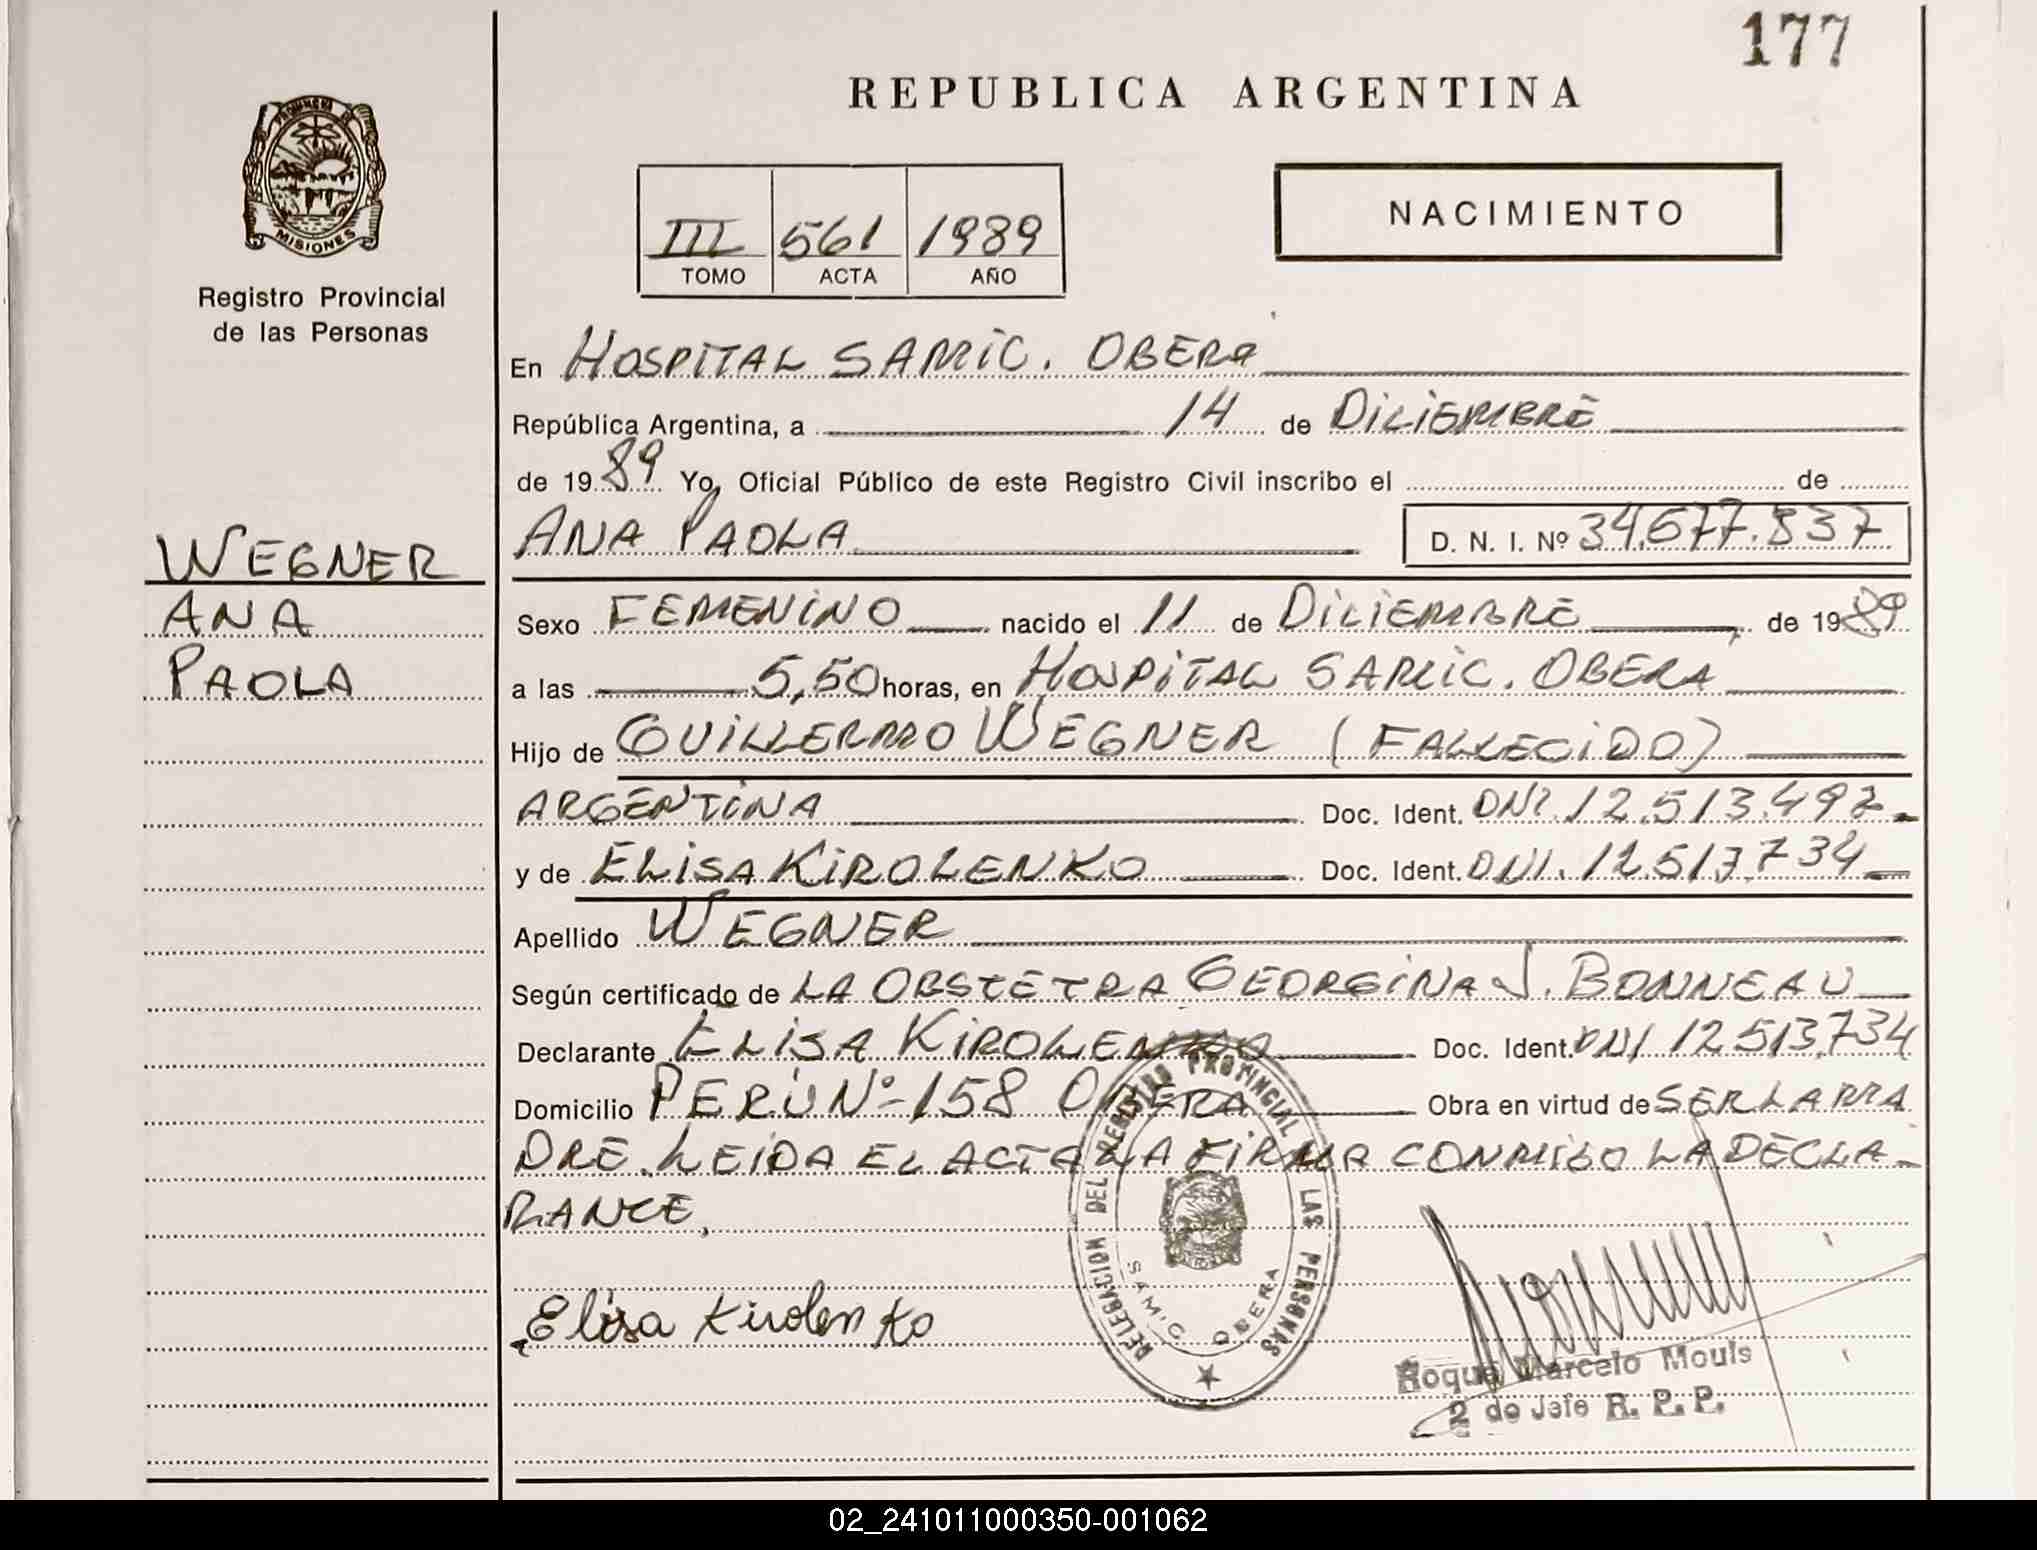 177
REPUBLICA ARGENTINA
PROVINCIA
MISIONES
Registro Provincial
de las Personas
III 561 1989
TOMO ACTA AÑO
NACIMIENTO
En HOSPITAL SAMIC. OBERA
República Argentina, a 14 de DICIEMBRE
de 1989 Yo, Oficial Público de este Registro Civil inscribo el de
ANA PAOLA D. N. I. Nº 34.677.837
WEGNER
ANA
PAOLA
Sexo FEMENINO nacido el 11 de DICIEMBRE de 1989
a las 5,50 horas, en HOSPITAL SAMIC. OBERA
Hijo de GUILLERMO WEGNER (FALLECIDO)
ARGENTINA Doc. Ident. DNI. 12.513.492
y de ELISA KIROLENKO Doc. Ident. DNI. 12.513.734
Apellido WEGNER
Según certificado de LA OBSTETRA GEORGINA J. BONNEAU
Declarante ELISA KIROLENKO Doc. Ident. DNI 12.513.734
Domicilio PERÚ Nº 158 OBERA Obra en virtud de SER LA MA
DRE. LEIDA EL ACTA LA FIRMA CONMIGO LA DECLA-
RANTE.
DELEGACION DEL REGISTRO PROVINCIAL DE LAS PERSONAS
SAMIC OBERA
Elisa Kirolenko
Roque Marcelo Mouls
2 do Jefe R. P. P.
02_241011000350-001062